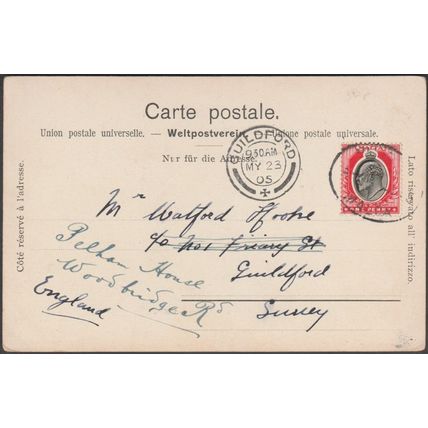 Carte postale.
Union postale universelle. — Weltpostverein. — Unione postale universale.
Nur für die Adresse.
GUILDFORD
930AM
MY 23
05
Côté réservé à l'adresse.
Lato riservato all' indirizzo.
Mr Watford Hooke
c/o No1 Friary St
Guildford
Surrey
Pelham House
Woodbridge Rd
England